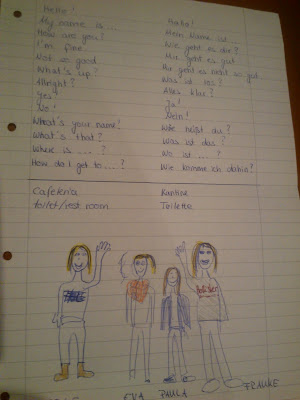 Hello! Hallo!
My name is .... Mein Name ist ....
How are you? Wie geht es dir?
I'm fine. Mir geht es gut
Not so good. Mir geht es nicht so gut
What's up? Was ist los?
Allright? Alles klar?
Yes! Ja!
No! Nein!
What's your name? Wie heißt du?
What's that? Was ist das?
Where is ....? Wo ist ....?
How do I get to ....? Wie komme ich dahin?
Cafeteria Kantine
toilet/rest room Toilette
EVA PAULA FRAUKE